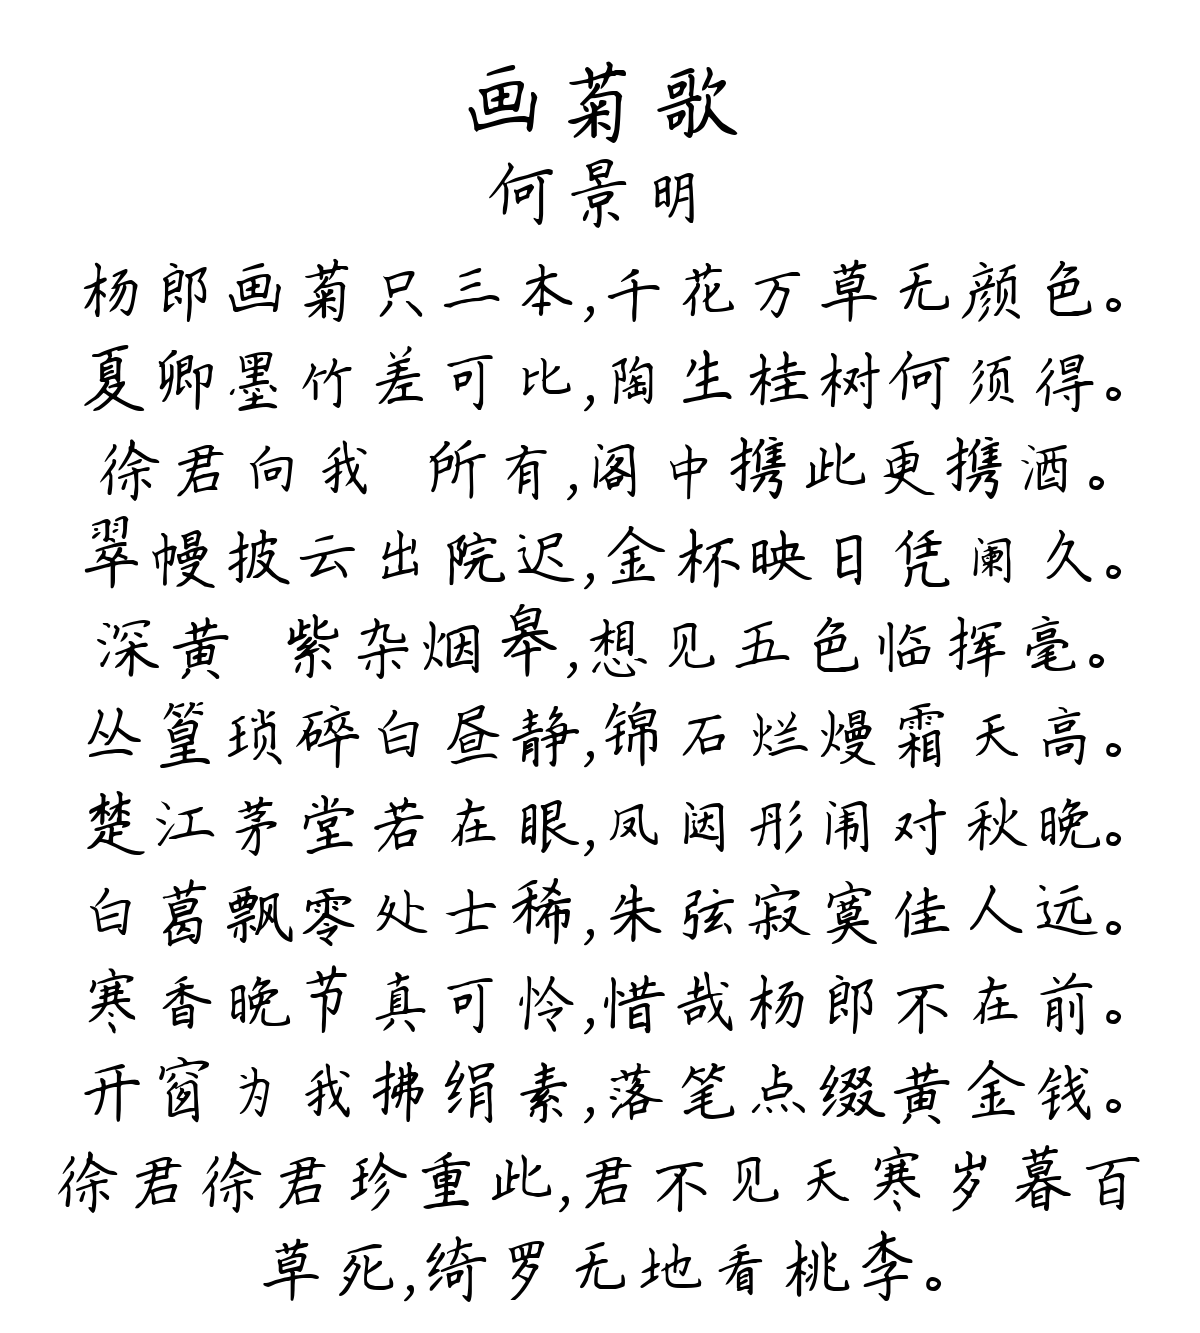 画菊歌
何景明
杨郎画菊只三本,千花万草无颜色。
夏卿墨竹差可比,陶生桂树何须得。
徐君向我 所有,阁中携此更携酒。
翠幔披云出院迟,金杯映日凭阑久。
深黄 紫杂烟皋,想见五色临挥毫。
丛篁琐碎白昼静,锦石烂熳霜天高。
楚江茅堂若在眼,凤闼彤闱对秋晚。
白葛飘零处士稀,朱弦寂寞佳人远。
寒香晚节真可怜,惜哉杨郎不在前。
开窗为我拂绢素,落笔点缀黄金钱。
徐君徐君珍重此,君不见天寒岁暮百
草死,绮罗无地看桃李。